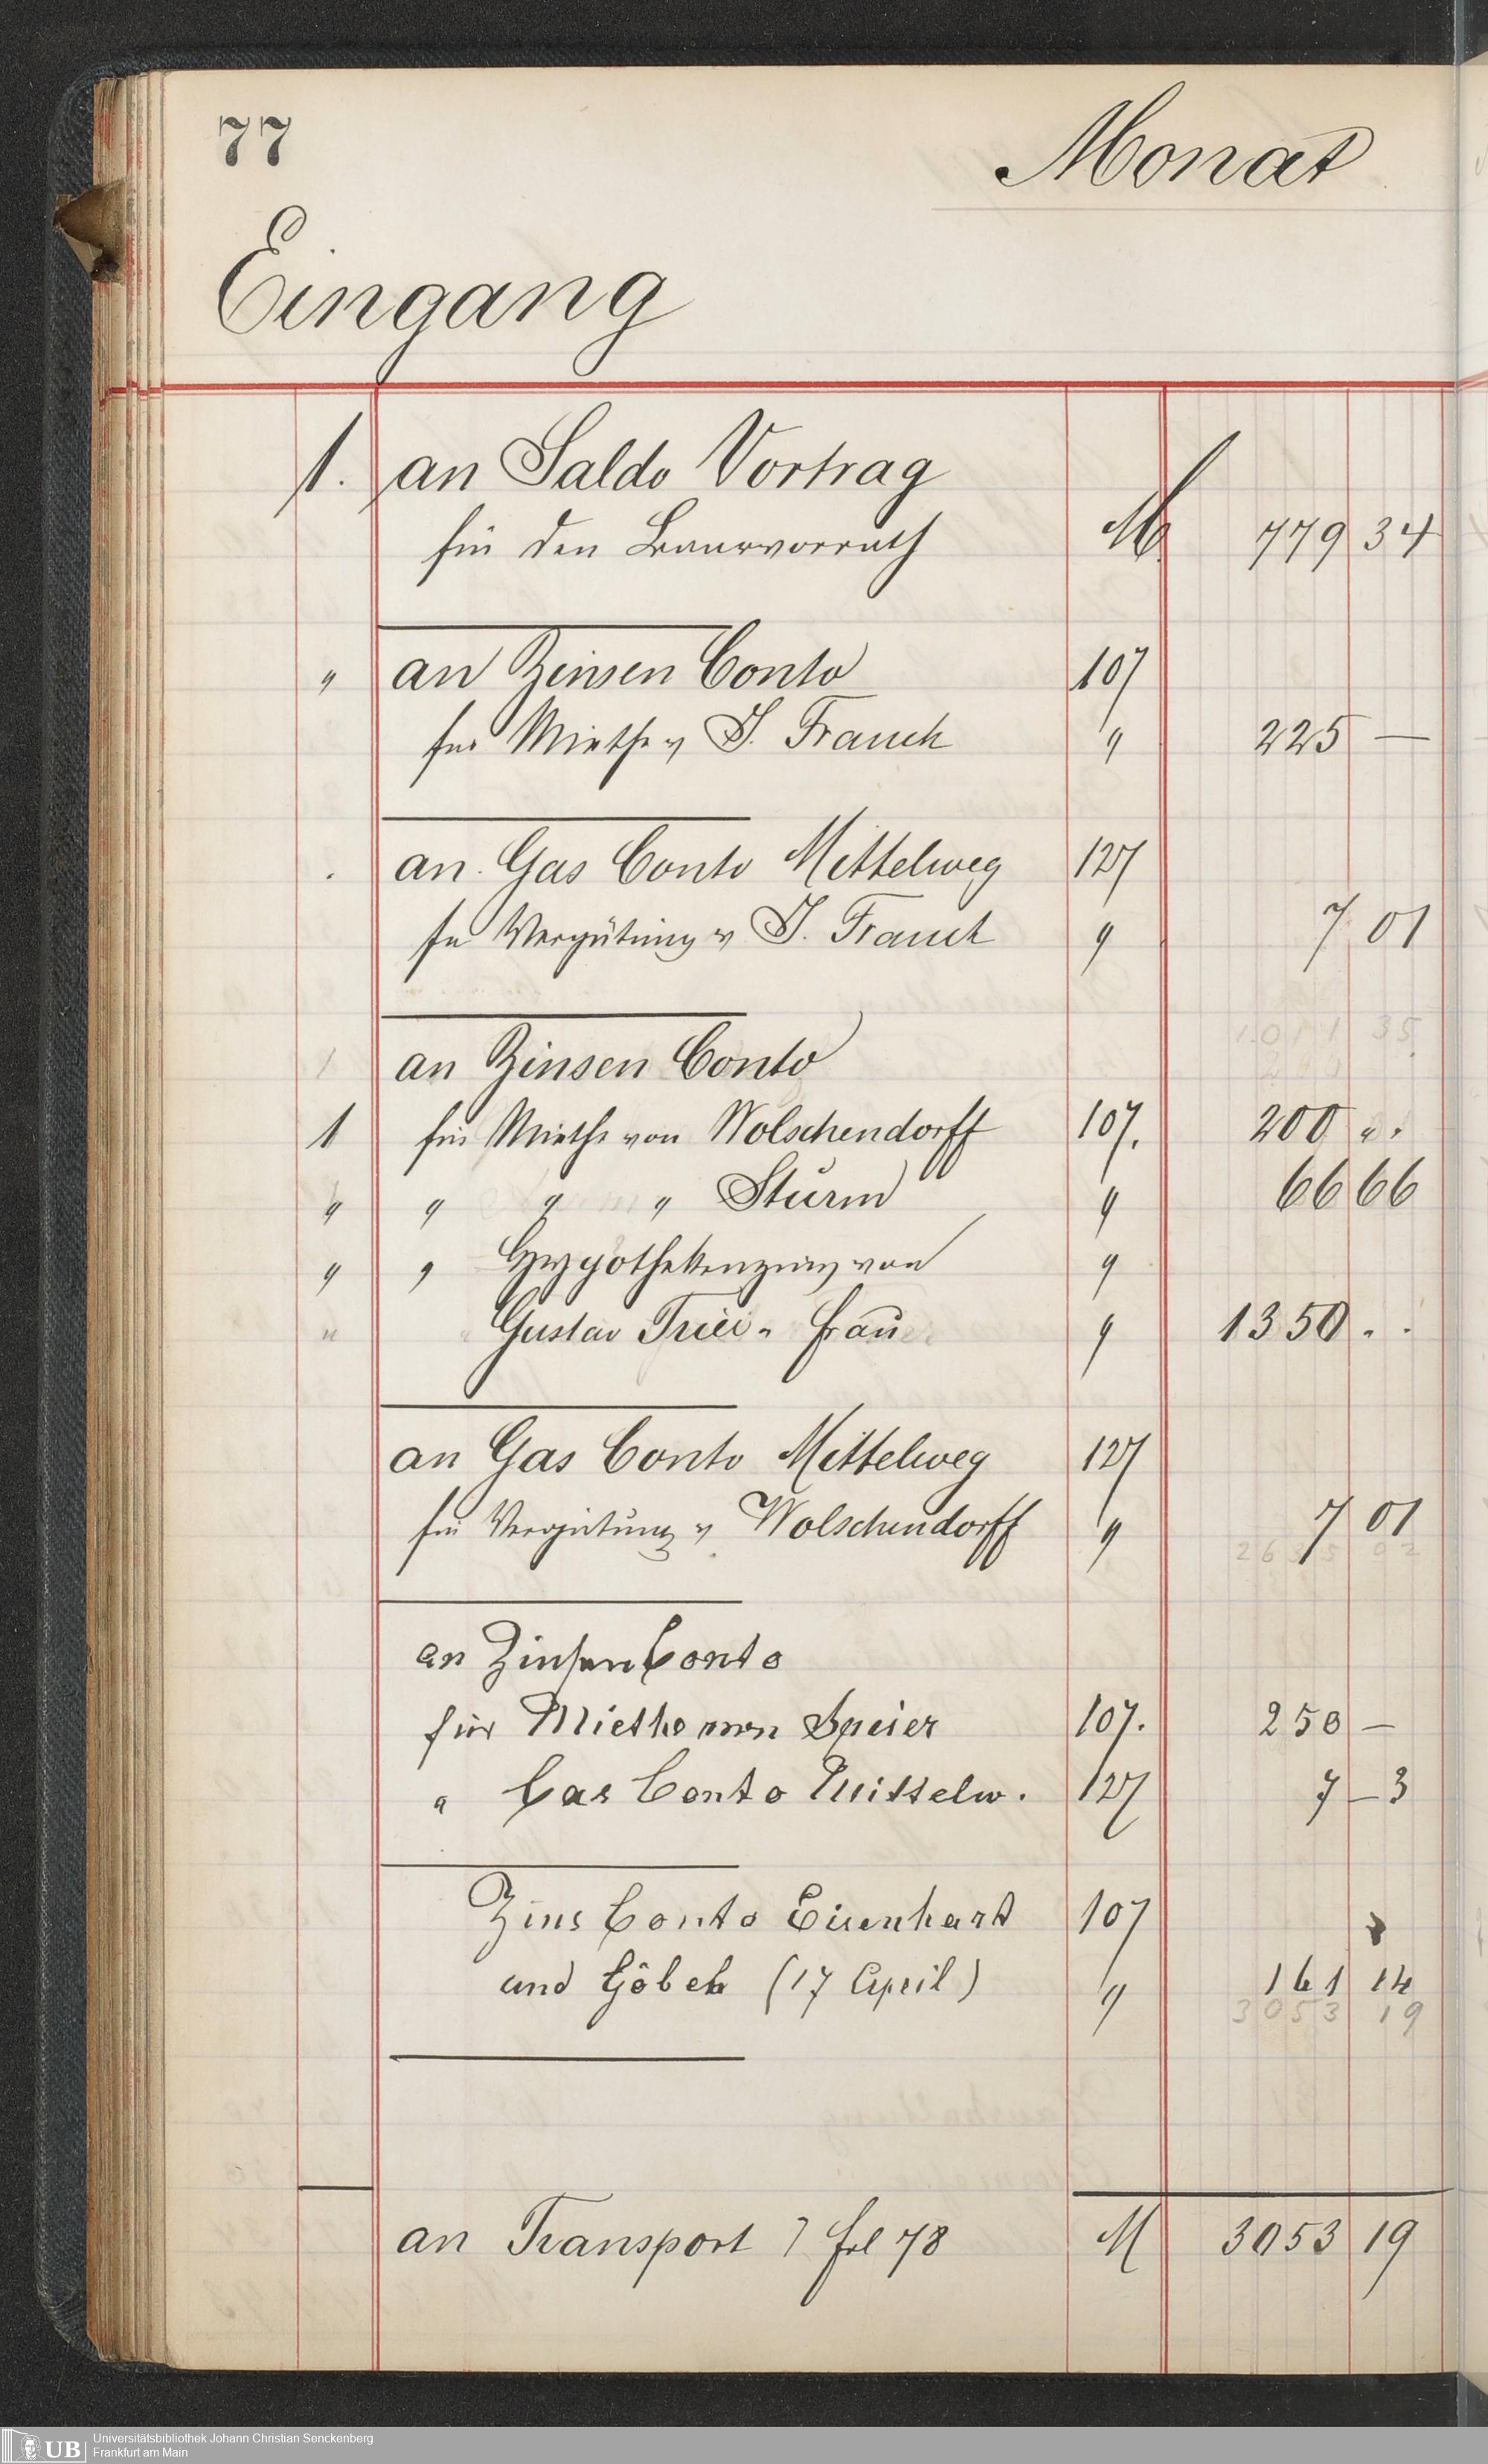 77
Monat
Eingang
1. an Saldo Vortrag
für den Baarvorrath M 779 34
" an Zinsen Conto 107
für Miethe v J. Franck " 225 —
. an Gas Conto Mittelweg 127
für Vergütung v J. Franck " 7 01
1011 35
1 an Zinsen Conto
1 für Miethe von Wolschendorff 107. 200 " .
" " " " Sturm " 66 66
" " Hypothekenzins von "
" Gustav Frau " 1350 . .
an Gas Conto Mittelweg 127
für Vergütung v Wolschendorff " 7 01
2635 02
an Zinsen Conto
für Miethe von Speier 107. 250 —
" Gas Conto Mittelw. 127 7 — 3
Zins Conto Eisenhart 107
und Göbel (17 April) " 161 14
3053 19
an Transport fol 78 M 3053 19
UB
Universitätsbibliothek Johann Christian Senckenberg
Frankfurt am Main